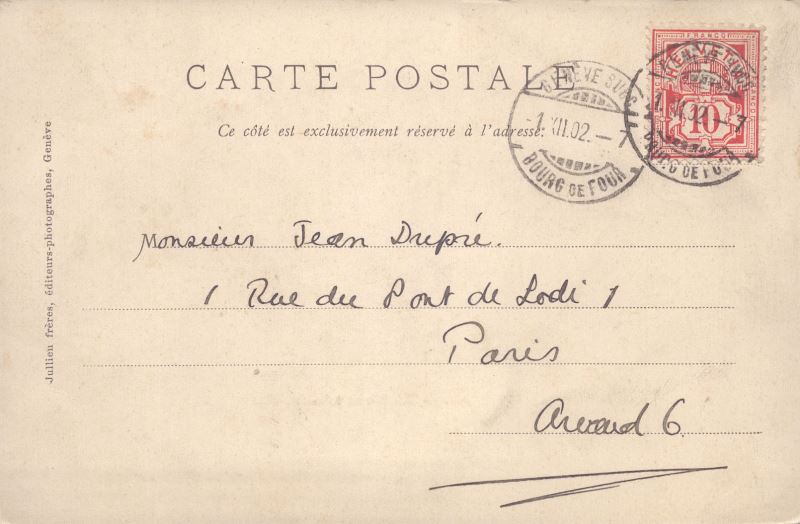 CARTE POSTALE
Ce côté est exclusivement réservé à l'adresse.
GENÈVE
-1.XII.02.-7
BOURG DE FOUR
FRANCO
HELVETIA
10
-1.XII.02.-7
BOURG DE FOUR
Monsieur Jean Dupré.
1 Rue du Pont de Lodi 1
Paris
6
Jullien frères, éditeurs-photographes, Genève